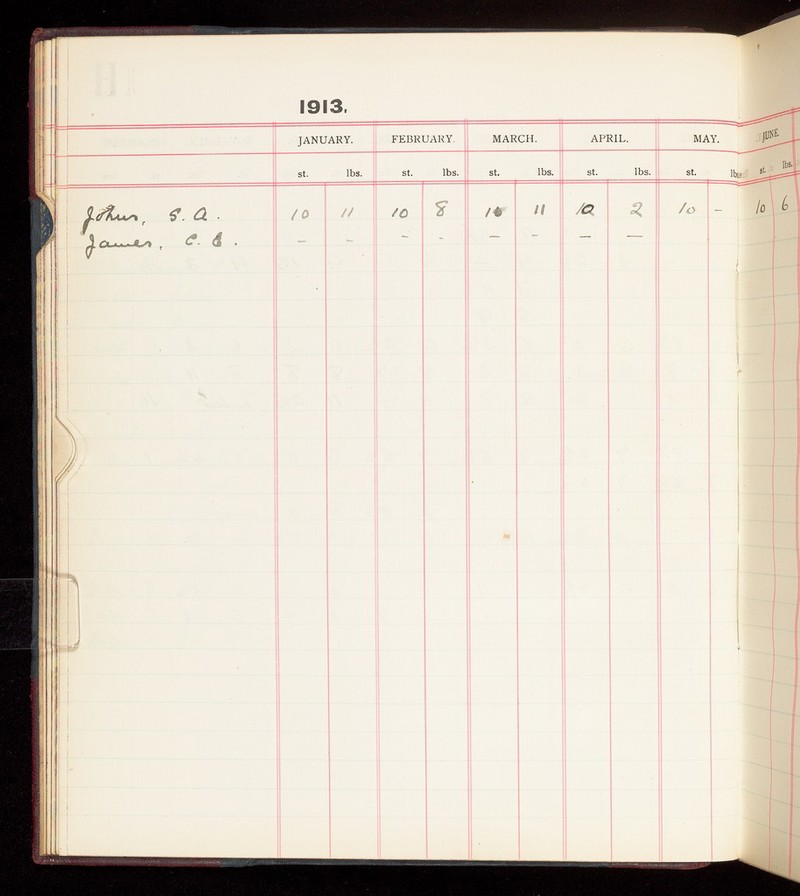 1913.
JANUARY. FEBRUARY. MARCH. APRIL. MAY. JUNE
st. lbs. st. lbs. st. lbs. st. lbs. st. lbs. st. lbs.
Johns, S. A. 10 11 10 8 10 11 10 2 10 – 10 6
James, C. – – – – – – – –